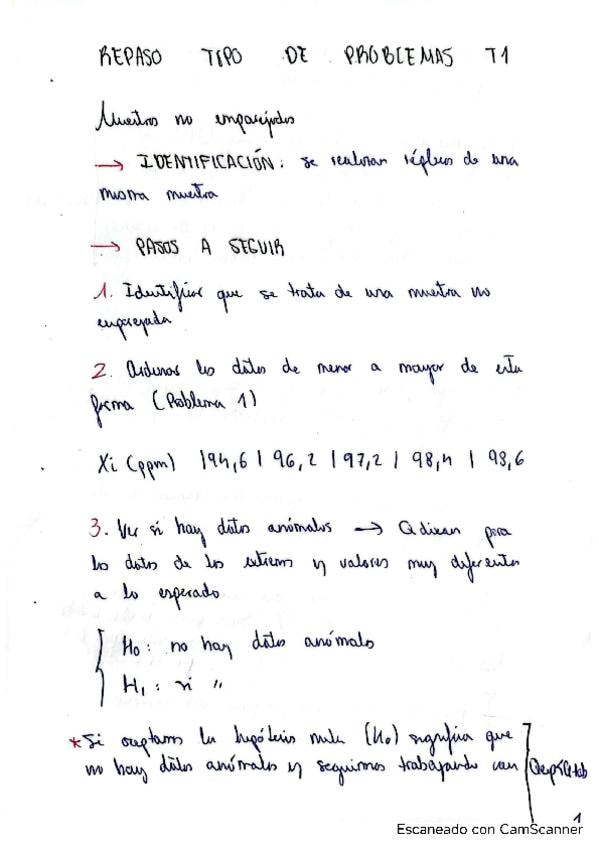 REPASO TIPO DE PROBLEMAS T1
Muestras no emparejadas
→ IDENTIFICACIÓN: se realizan réplicas de una
misma muestra
→ PASOS A SEGUIR
1. Identificar que se trata de una muestra no
emparejada
2. Ordenar los datos de menor a mayor de esta
forma (Problema 1)
Xi (ppm) | 94,6 | 96,2 | 97,2 | 98,4 | 98,6
3. Ver si hay datos anómalos → Q dixon para
los datos de los extremos y valores muy diferentes
a lo esperado
H0: no hay datos anómalos
H1: si "
* Si aceptamos la hipótesis nula (H0) significa que
no hay datos anómalos y seguimos trabajando con Qexp<Qtab
1
Escaneado con CamScanner